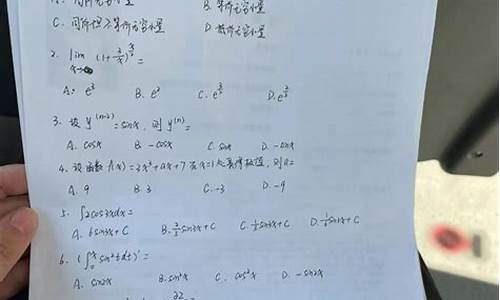 A. 同阶无穷小量 B. 等价无穷小量
C. 同阶但不等价无穷小量 D.
2. lim x→∞ (1+2/x)^ =
A. e³ B. e² C. e D. e
3. 设 y^(n-2) = sinx, 则 y^(n) =
A. cosx B. -cosx C. sinx D. -sinx
4. 设函数 f(x) = 2x³+ax+7 在x=1处取得极值, 则a=
A. 9 B. 3 C. -3 D. -9
5. ∫2cos3xdx =
A. 6sin3x+C B. 2/3 sin3x+C C. sin3x+C D. sin+C
6. (∫₀ˣ sin²tdt)' =
A. sin2x B. sin²x C. cos²x D. -sin2x